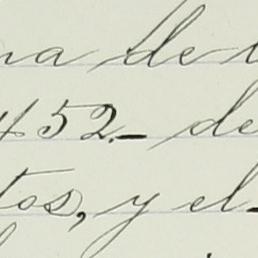 na de
452._ de
tos, y el